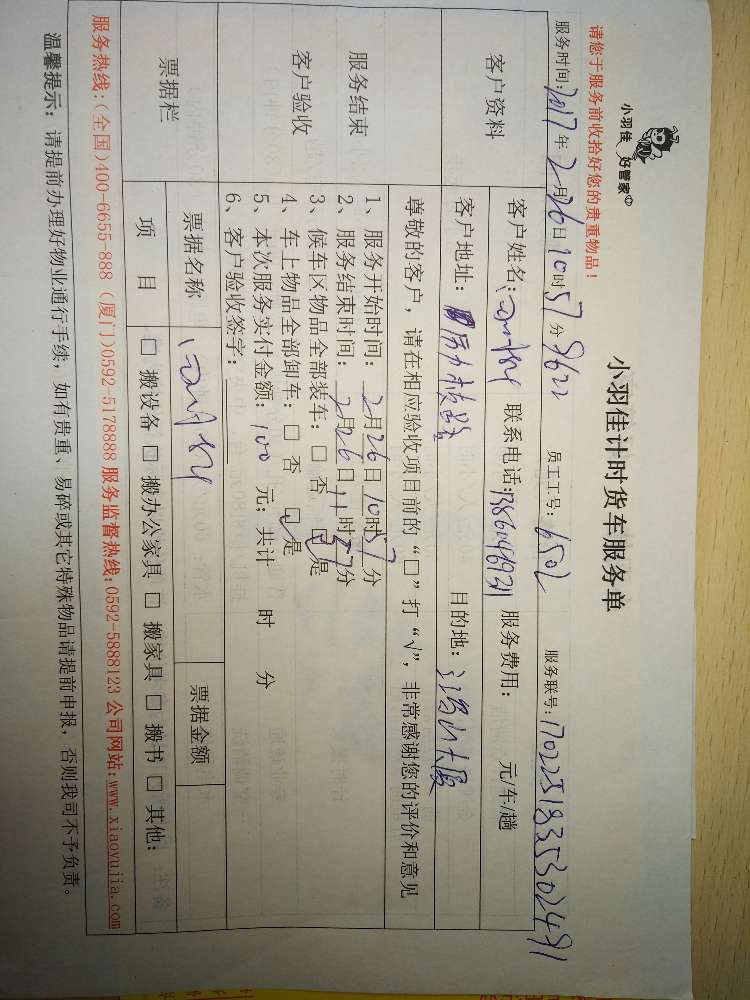 小羽佳 好管家
小羽佳计时货车服务单
请您于服务前收拾好您的贵重物品!
服务时间: 2017年2月26日10时57分 员工工号: 6502 服务联号:
客户资料
客户姓名: 联系电话: 服务费用: 元/车/趟
客户地址: 目的地: 大厦
服务结束
客户验收
尊敬的客户，请在相应验收项目前的“□”打“√”，非常感谢您的评价和意见
1、服务开始时间: 2月26日10时57分
2、服务结束时间: 2月26日11时57分
3、候车区物品全部装车: □ 否 □ 是
4、车上物品全部卸车: □ 否 □ 是
5、本次服务实付金额: 100 元; 共计 时 分
6、客户验收签字:
票据栏
票据名称 票据金额
项目 □ 搬设备 □ 搬办公家具 □ 搬家具 □ 搬书 □ 其他:
服务热线:(全国)400-6655-888 (厦门)0592-5178888 服务监督热线:0592-5888123 公司网站:www.xiaoyujia.com
温馨提示: 请提前办理好物业通行手续，如有贵重、易碎或其它特殊物品请提前申报，否则我司不予负责。